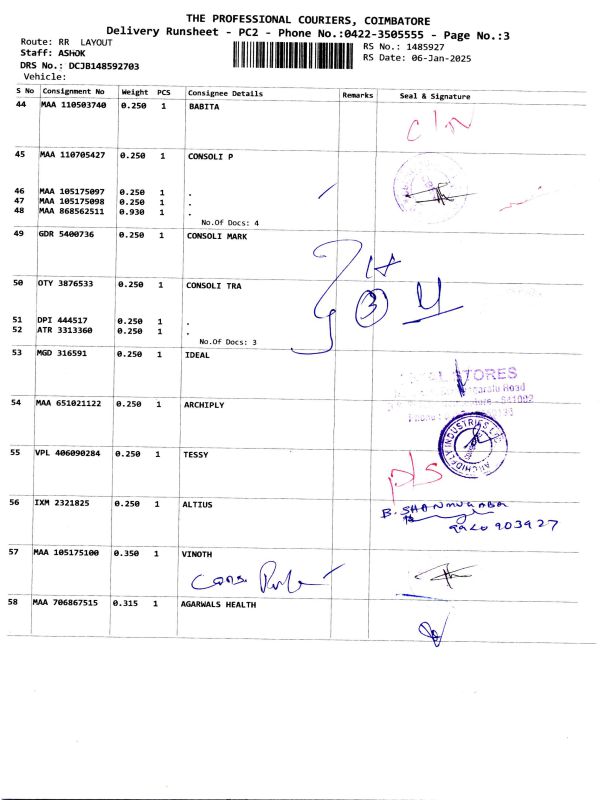 THE PROFESSIONAL COURIERS, COIMBATORE
Delivery Runsheet - PC2 - Phone No.:0422-3505555 - Page No.:3
Route: RR LAYOUT
RS No.: 1485927
Staff: ASHOK
RS Date: 06-Jan-2025
DRS No.: DCJB148592703
Vehicle:
S No Consignment No Weight PCS Consignee Details Remarks Seal & Signature
44 MAA 110503740 0.250 1 BABITA
45 MAA 110705427 0.250 1 CONSOLI P
46 MAA 105175097 0.250 1 .
47 MAA 105175098 0.250 1 .
48 MAA 868562511 0.930 1 .
No.Of Docs: 4
49 GDR 5400736 0.250 1 CONSOLI MARK
50 OTY 3876533 0.250 1 CONSOLI TRA
3
51 DPI 444517 0.250 1 .
52 ATR 3313360 0.250 1 .
No.Of Docs: 3
53 MGD 316591 0.250 1 IDEAL
STORES
Road
641002
54 MAA 651021122 0.250 1 ARCHIPLY
ARCHIDPLY INDUSTRIES LTD
55 VPL 406090284 0.250 1 TESSY
56 IXM 2321825 0.250 1 ALTIUS
B. SHANMUGABA
57 MAA 105175100 0.350 1 VINOTH
58 MAA 706867515 0.315 1 AGARWALS HEALTH